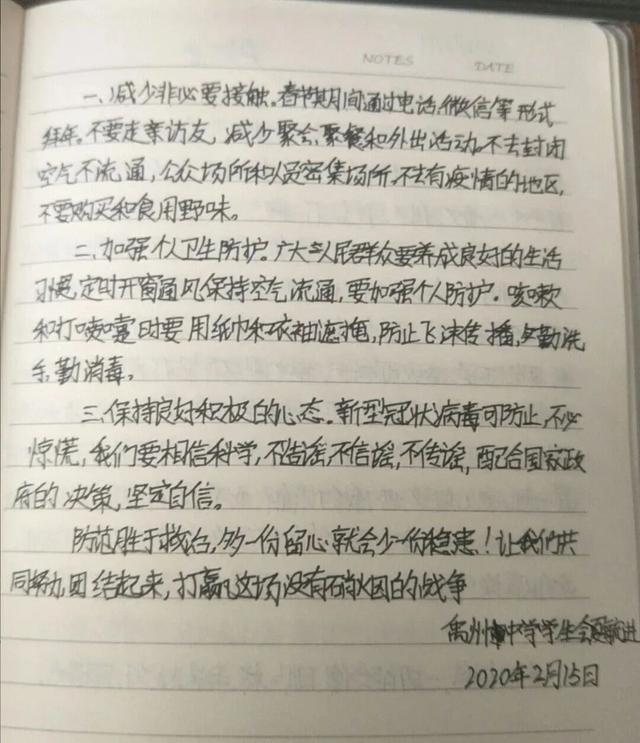 NOTES DATE
一、减少非必要接触。春节期间通过电话、微信等形式
拜年。不要走亲访友，减少聚会、聚餐和外出活动。不去封闭
空气不流通，公众场所和人员密集场所，不去有疫情的地区，
不要购买和食用野味。
二、加强个人卫生防护。广大人民群众要养成良好的生活
习惯，定时开窗通风保持空气流通，要加强个人防护。咳嗽
和打喷嚏时要用纸巾和衣袖遮掩，防止飞沫传播，勤洗
手，勤消毒。
三、保持良好积极的心态。新型冠状病毒可防止，不必
惊慌，我们要相信科学，不造谣，不信谣，不传谣，配合国家政
府的决策，坚定自信。
防范胜于救治，多一份留心就会少一份隐患！让我们共
同努力团结起来，打赢这场没有硝烟的战争
禹州 中学学生会
2020年2月15日